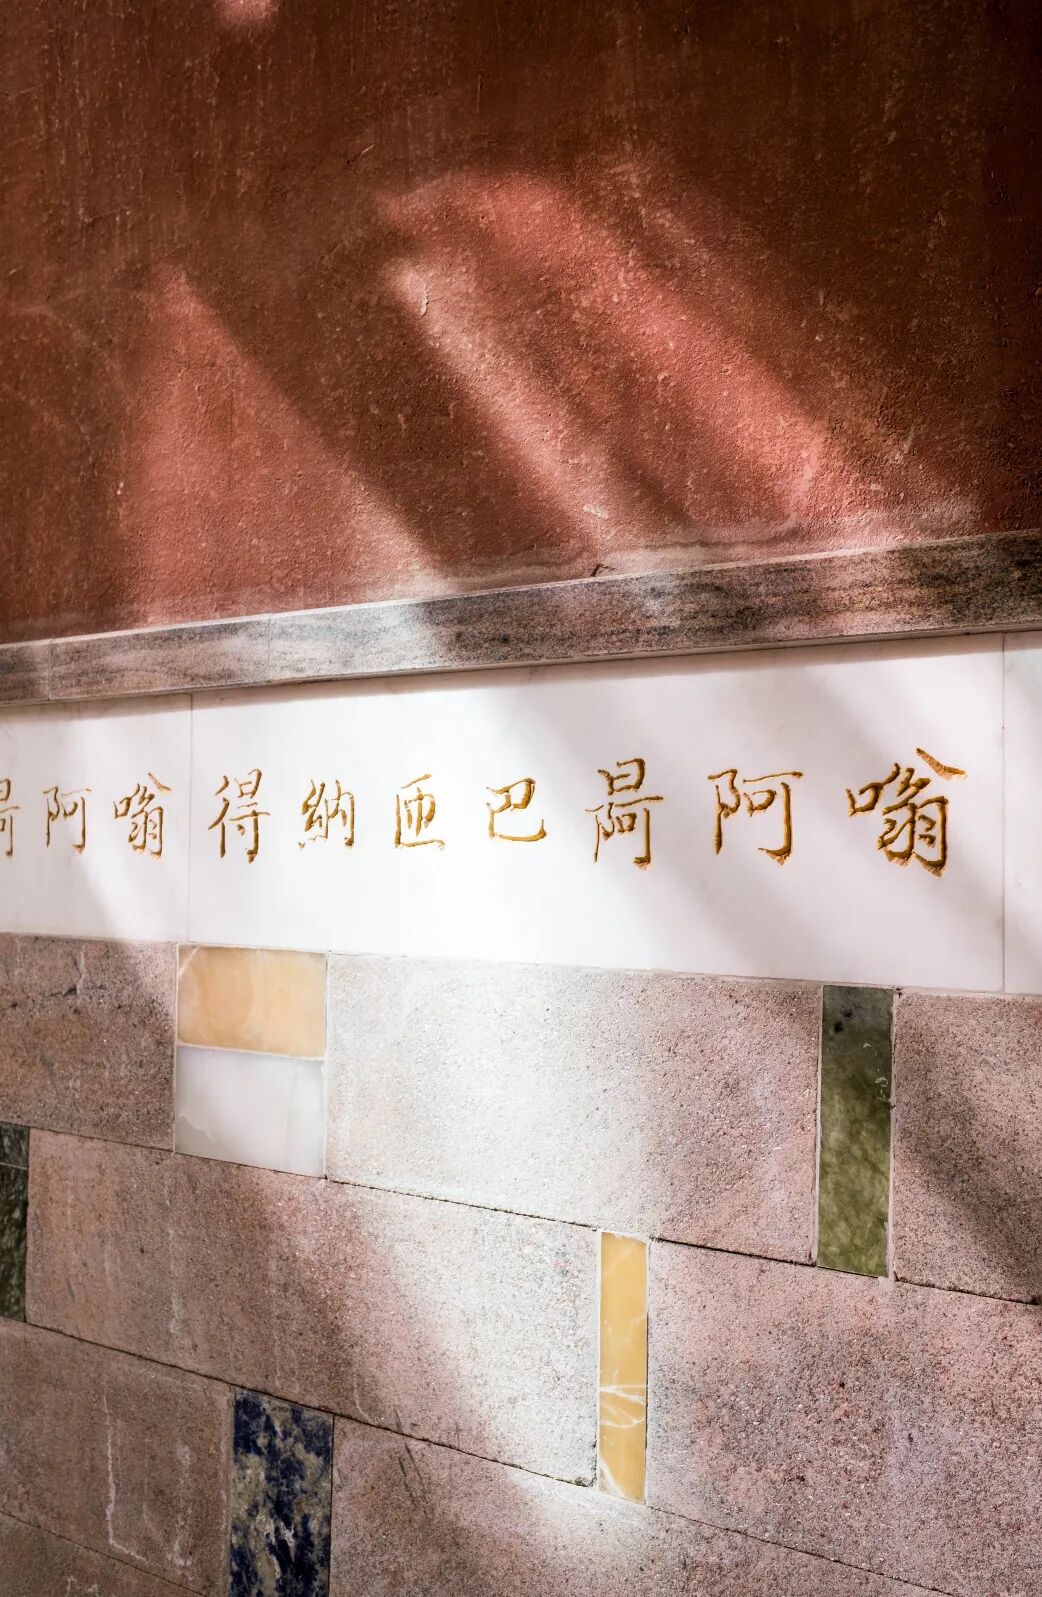 嗡阿巴匝納得嗡阿